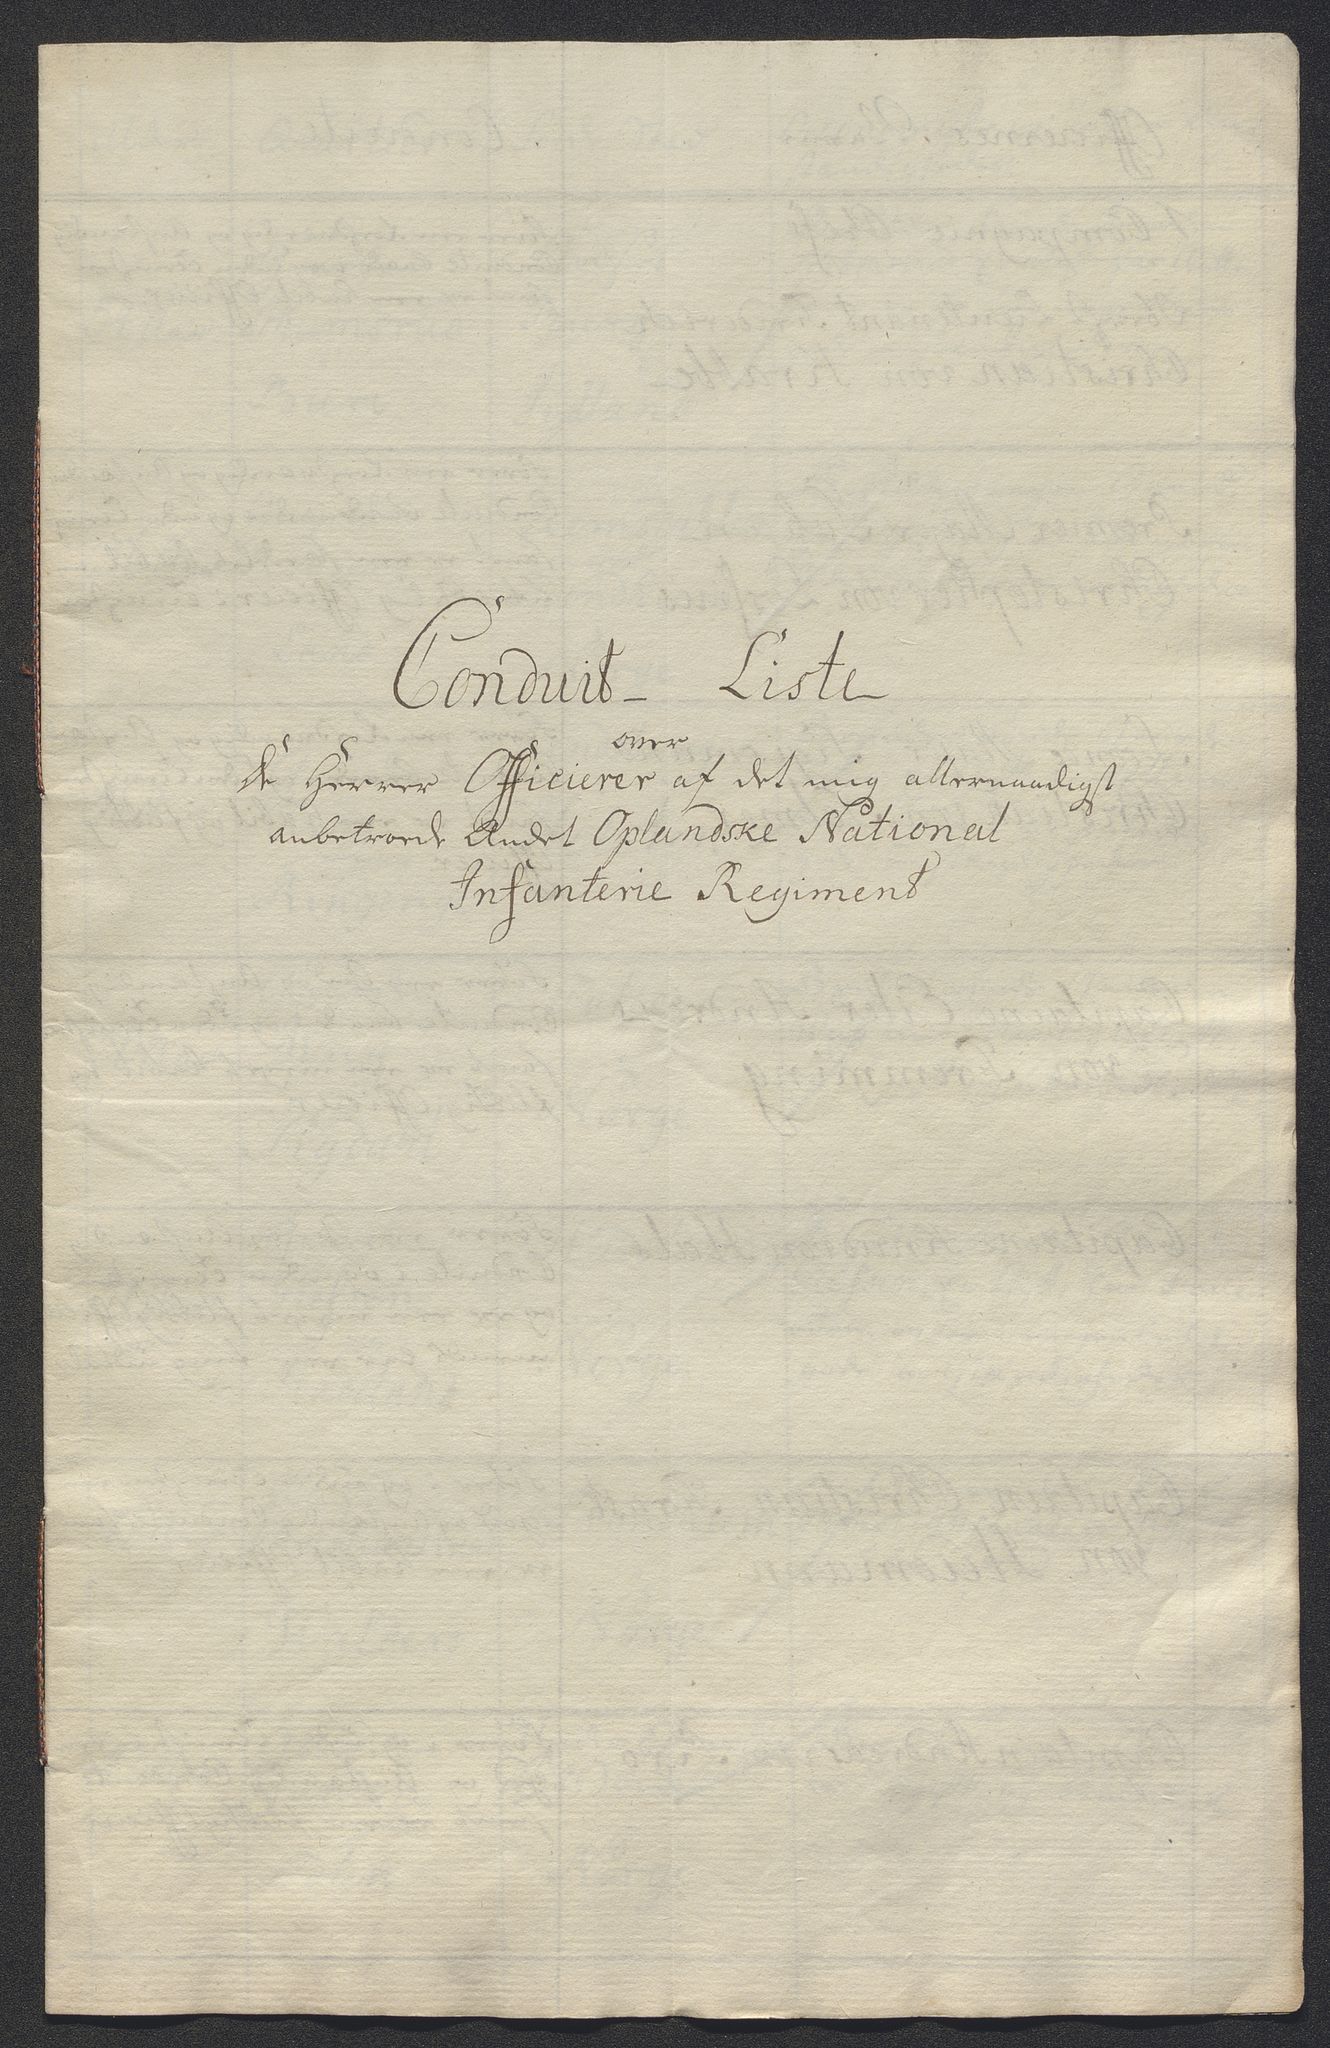 Conduit- Liste
over
de Herrer Officierer af det mig allernaadigst
anbetroede Andet Oplandske National
Infanterie Regiment